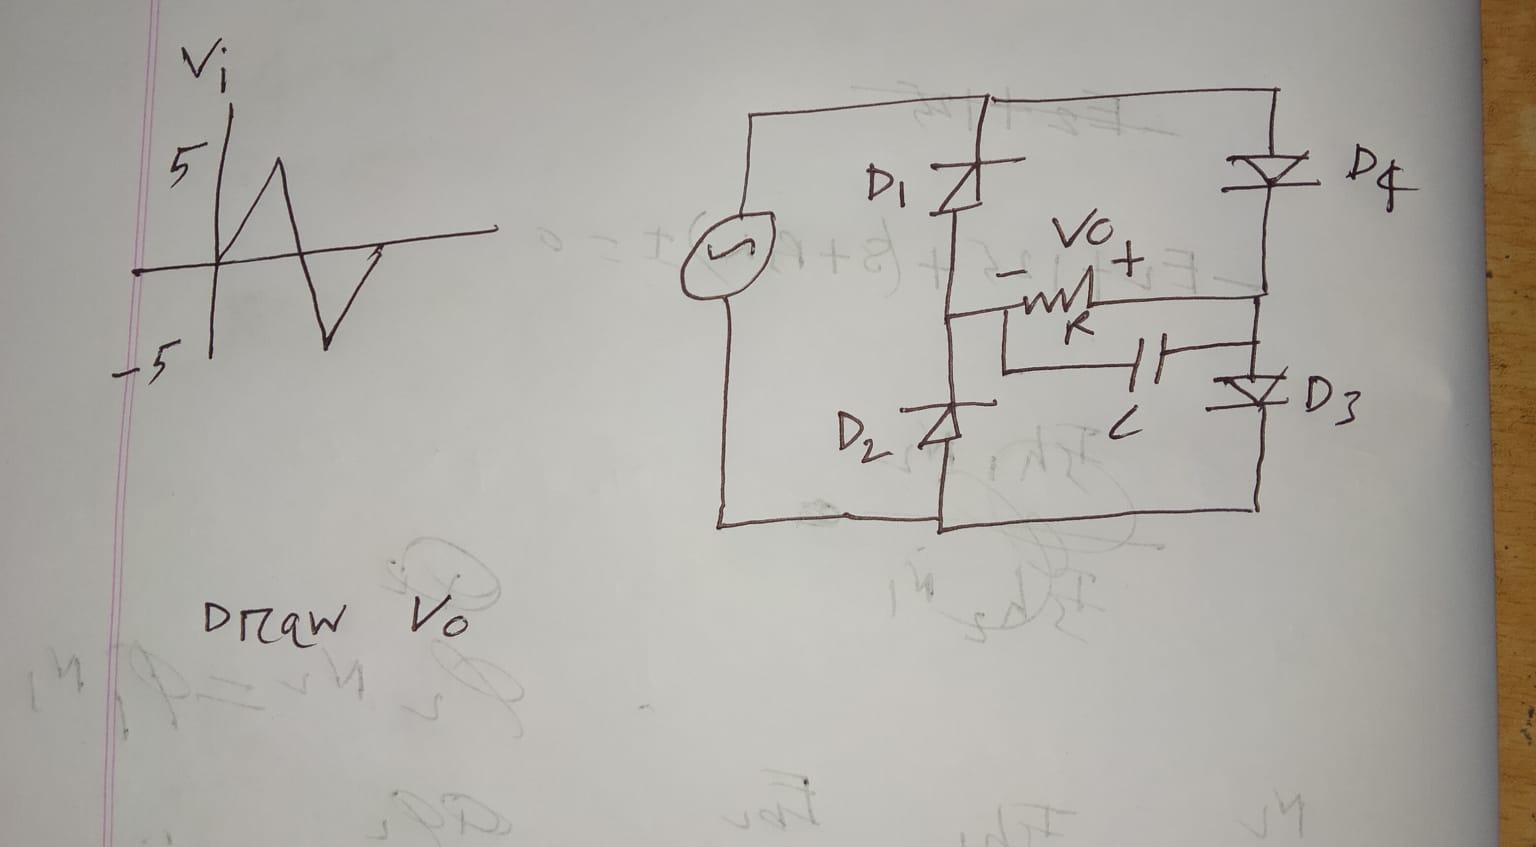 Vi
5
-5
D1
D4
Vo
- +
R
C
D2
D3
Draw Vo